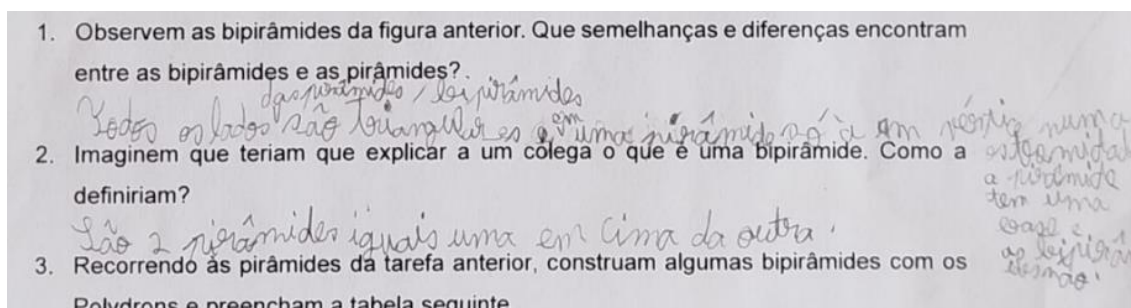 1. Observem as bipirâmides da figura anterior. Que semelhanças e diferenças encontram
entre as bipirâmides e as pirâmides?.
das pirâmides / bipirâmides
Todos os lados são triangulares e em uma pirâmide só à um vértiz numa
estremidade
a pirâmide
tem uma
base e
as bipirâm
ides não.
2. Imaginem que teriam que explicar a um colega o que é uma bipirâmide. Como a
definiriam?
São 2 pirâmides iguais uma em cima da outra.
3. Recorrendo às pirâmides da tarefa anterior, construam algumas bipirâmides com os
Polydrons e preencham a tabela seguinte